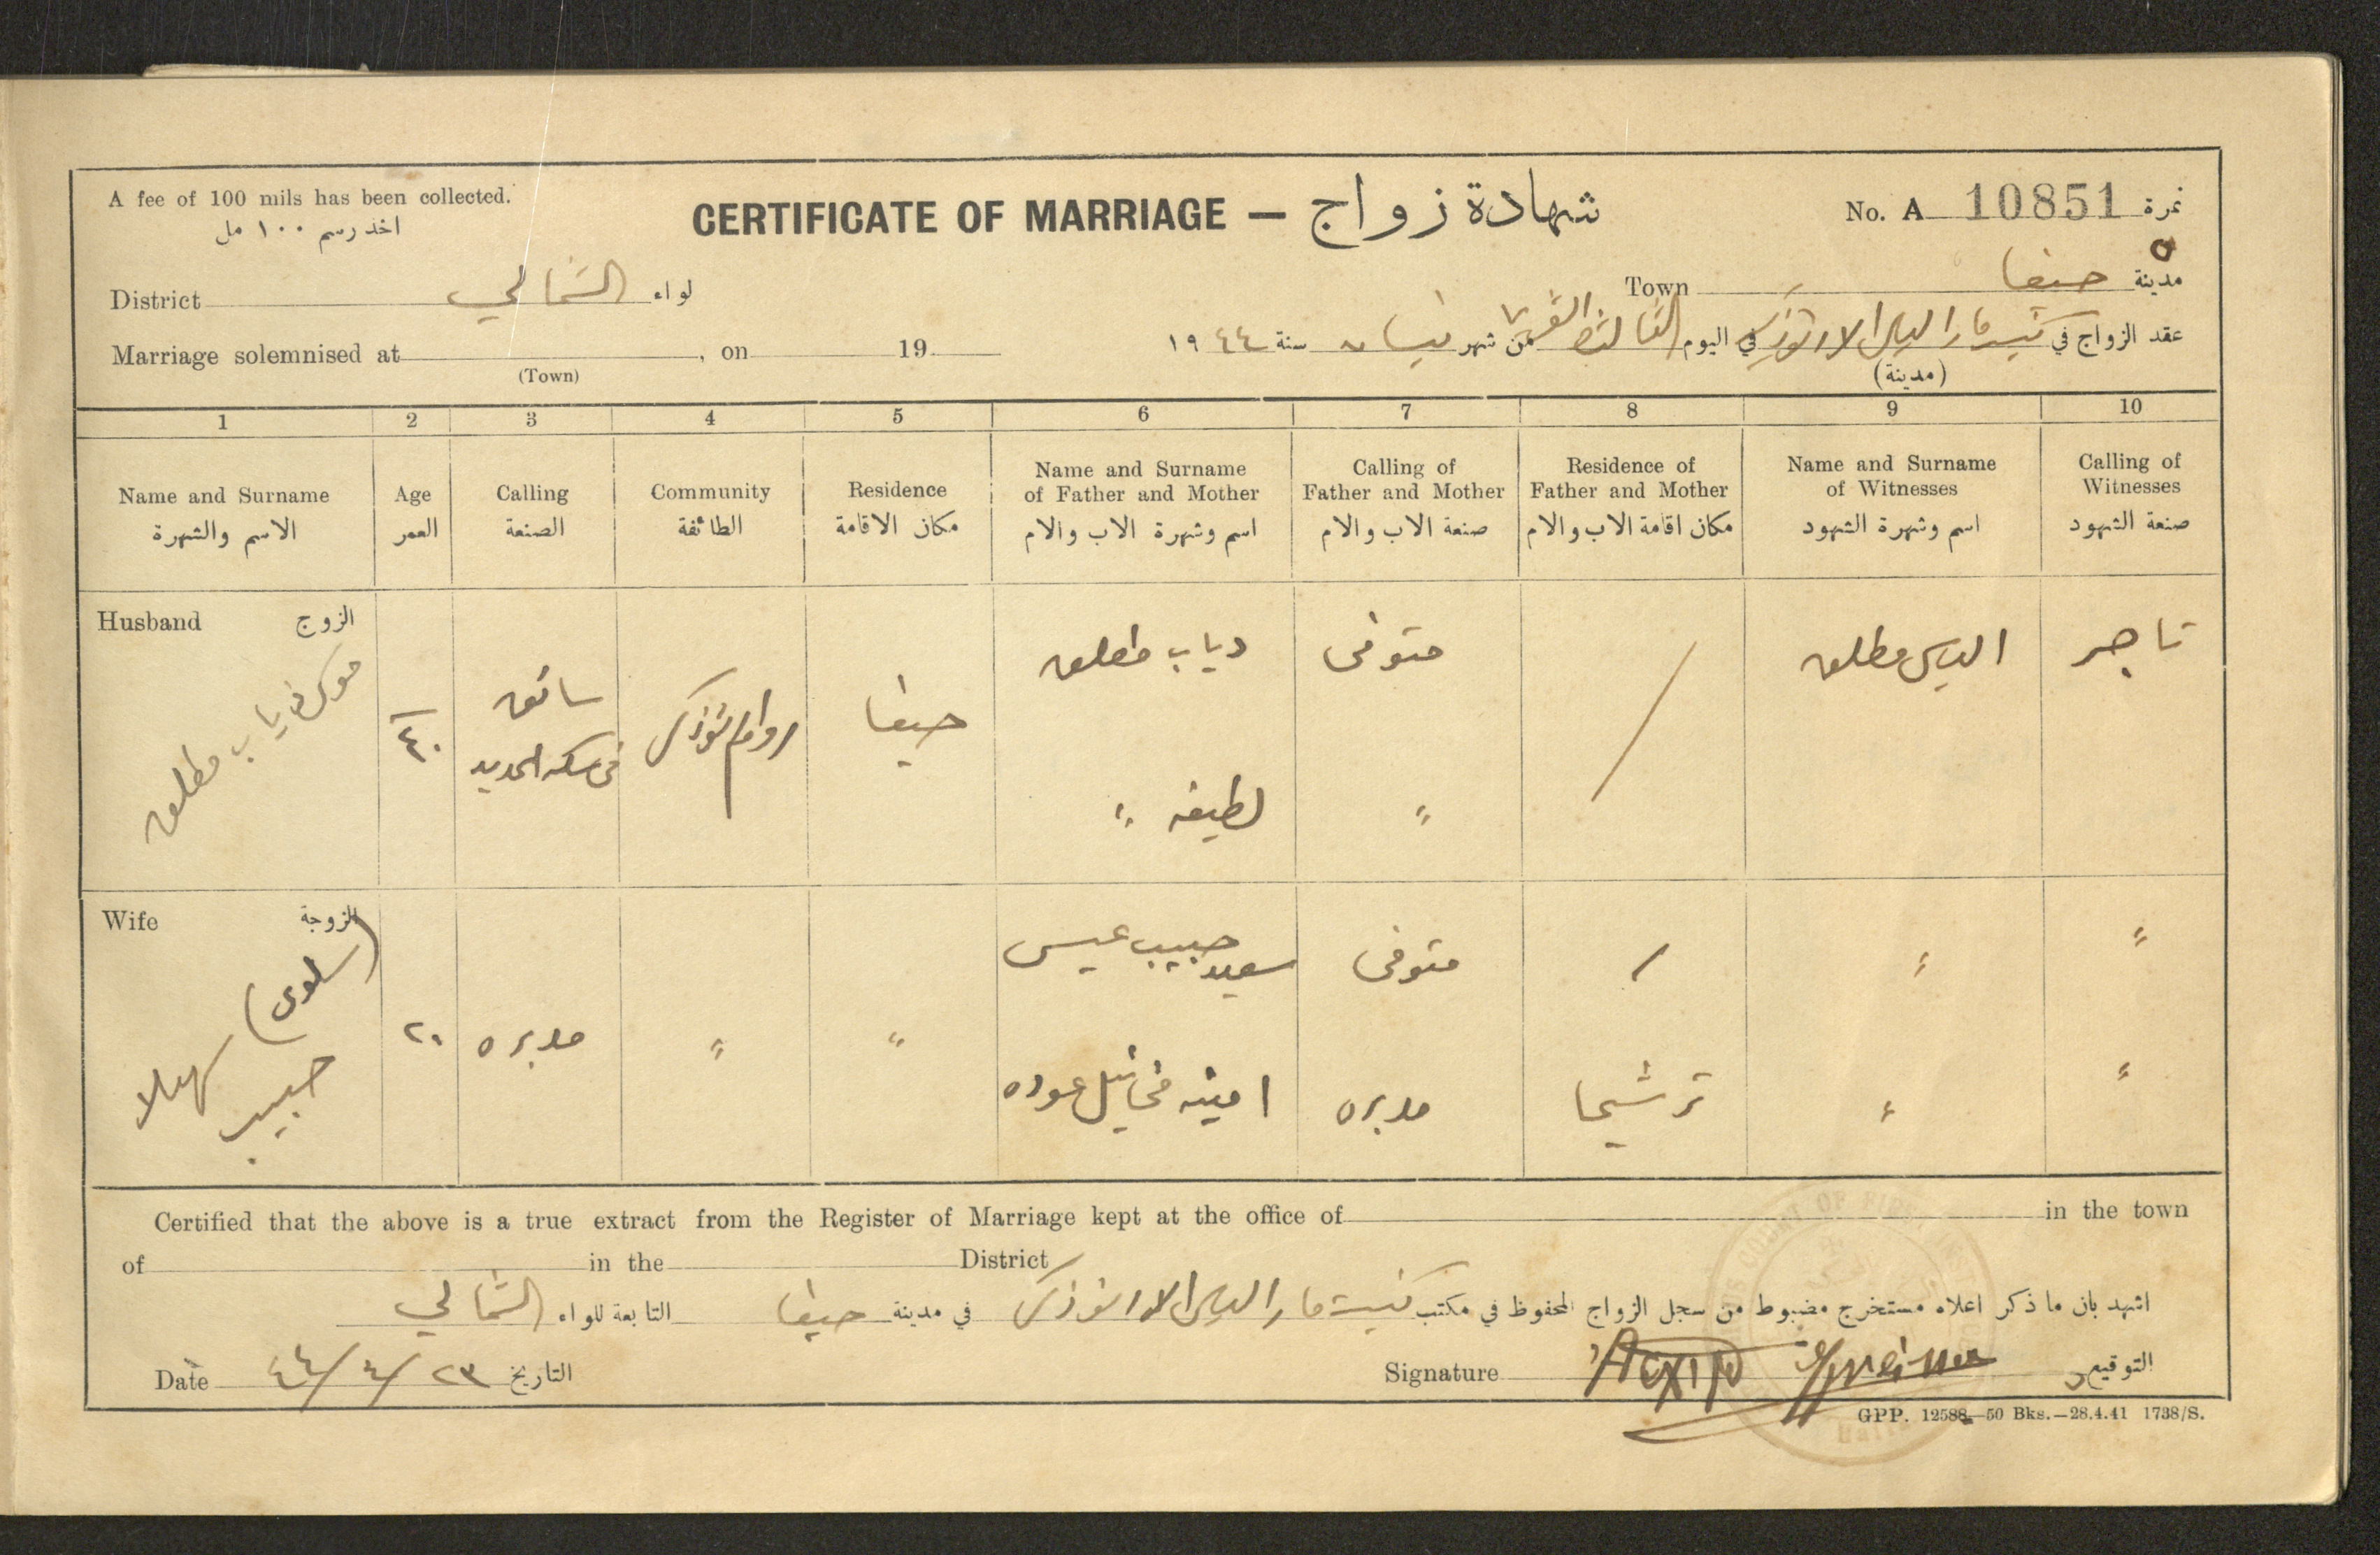 A fee of 100 mils has been collected.
اخذ رسم ١٠٠ مل
CERTIFICATE OF MARRIAGE — شهادة زواج
No. A 10851 نمرة
District الشمالي لواء
Town حيفا مدينة
Marriage solemnised at , on 19
(Town)
عقد الزواج في كنيسة مار الياس الارثوذكس في اليوم الثالث والعشرين من شهر نيسان سنة ١٩٤٤
(مدينة)
1 2 3 4 5 6 7 8 9 10
Name and Surname
الاسم والشهرة
Age
العمر
Calling
الصنعة
Community
الطائفة
Residence
مكان الاقامة
Name and Surname
of Father and Mother
اسم وشهرة الاب والام
Calling of
Father and Mother
صنعة الاب والام
Residence of
Father and Mother
مكان اقامة الاب والام
Name and Surname
of Witnesses
اسم وشهرة الشهود
Calling of
Witnesses
صنعة الشهود
Husband الزوج
دياب مطلق
٤٠
سائق
في سكه الحديد
روم ارثوذكس
حيفا
دياب مطلق
لطيفه "
متوفى
"
/
الياس مطلق
تاجر
Wife الزوجة
(سلوى)
كهيلا
حبيب
٢٠
مدبره
"
"
سعيد حبيب عيسى
امينه مخائيل عوده
متوفى
مدبره
/
ترشيحا
"
"
"
"
Certified that the above is a true extract from the Register of Marriage kept at the office of in the town
of in the District
اشهد بان ما ذكر اعلاه مستخرج مضبوط من سجل الزواج المحفوظ في مكتب كنيسة مار الياس الارثوذكس في مدينة حيفا التابعة للواء الشمالي
Date ٢٣/٤/٤٤ التاريخ
Signature التوقيع
GPP. 12588—50 Bks.—28.4.41 1738/S.